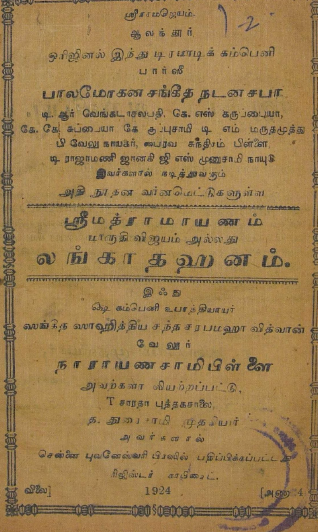 ஸ்ரீராமஜெயம்.
ஆலக்கூர்
ஒரிஜினல் இந்து டிராமாடிக் கம்பெனி
பார்ஸீ
பாலமோகன சங்கீத நடனசபா.
டி. ஆர் வெங்கடாசலபதி, கே. எஸ் கருப்பையா,
கே. கே சுப்பையா கே குப்புசாமி டி எம் மருதமுத்து
பி வேலு நாயகர், சுந்திரம் பிள்ளை,
டி ராஜாமணி ஜானகி ஜி எஸ் முனுசாமி நாயுடு
இவர்களால் நடித்துவரும்
அதி நூதன வர்னமெட்டுகளுள்ள
ஸ்ரீமத்ராமாயணம்
மாருதி விஜயம் அல்லது
லங்காதஹனம்.
இஃது
ஷெ கம்பெனி உபாத்தியாயர்
ஸங்கீத ஸாஹித்திய சந்த சரபமஹா வித்வான்
வேலூர்
நாராயணசாமிபிள்ளை
அவர்களா லியற்றப்பட்டு,
T சாரதா புத்தகசாலை,
த. துரைசாமி முதலியார்
அவர்களால்
சென்னை புவனேஸ்வரி பிரஸில் பதிப்பிக்கப்பட்டது
ரிஜிஸ்டர் காபிரைட்.
விலை] 1924 [அணா